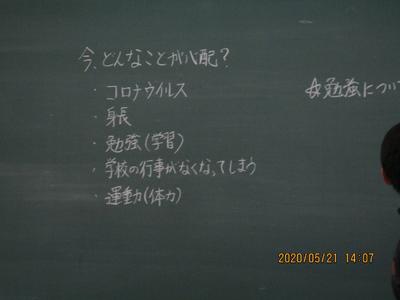 今、どんなことが心配?
・コロナウイルス
・身長
・勉強(学習)
・学校の行事がなくなってしまう
・運動(体力)
☆勉強につい
2020/05/21 14:07